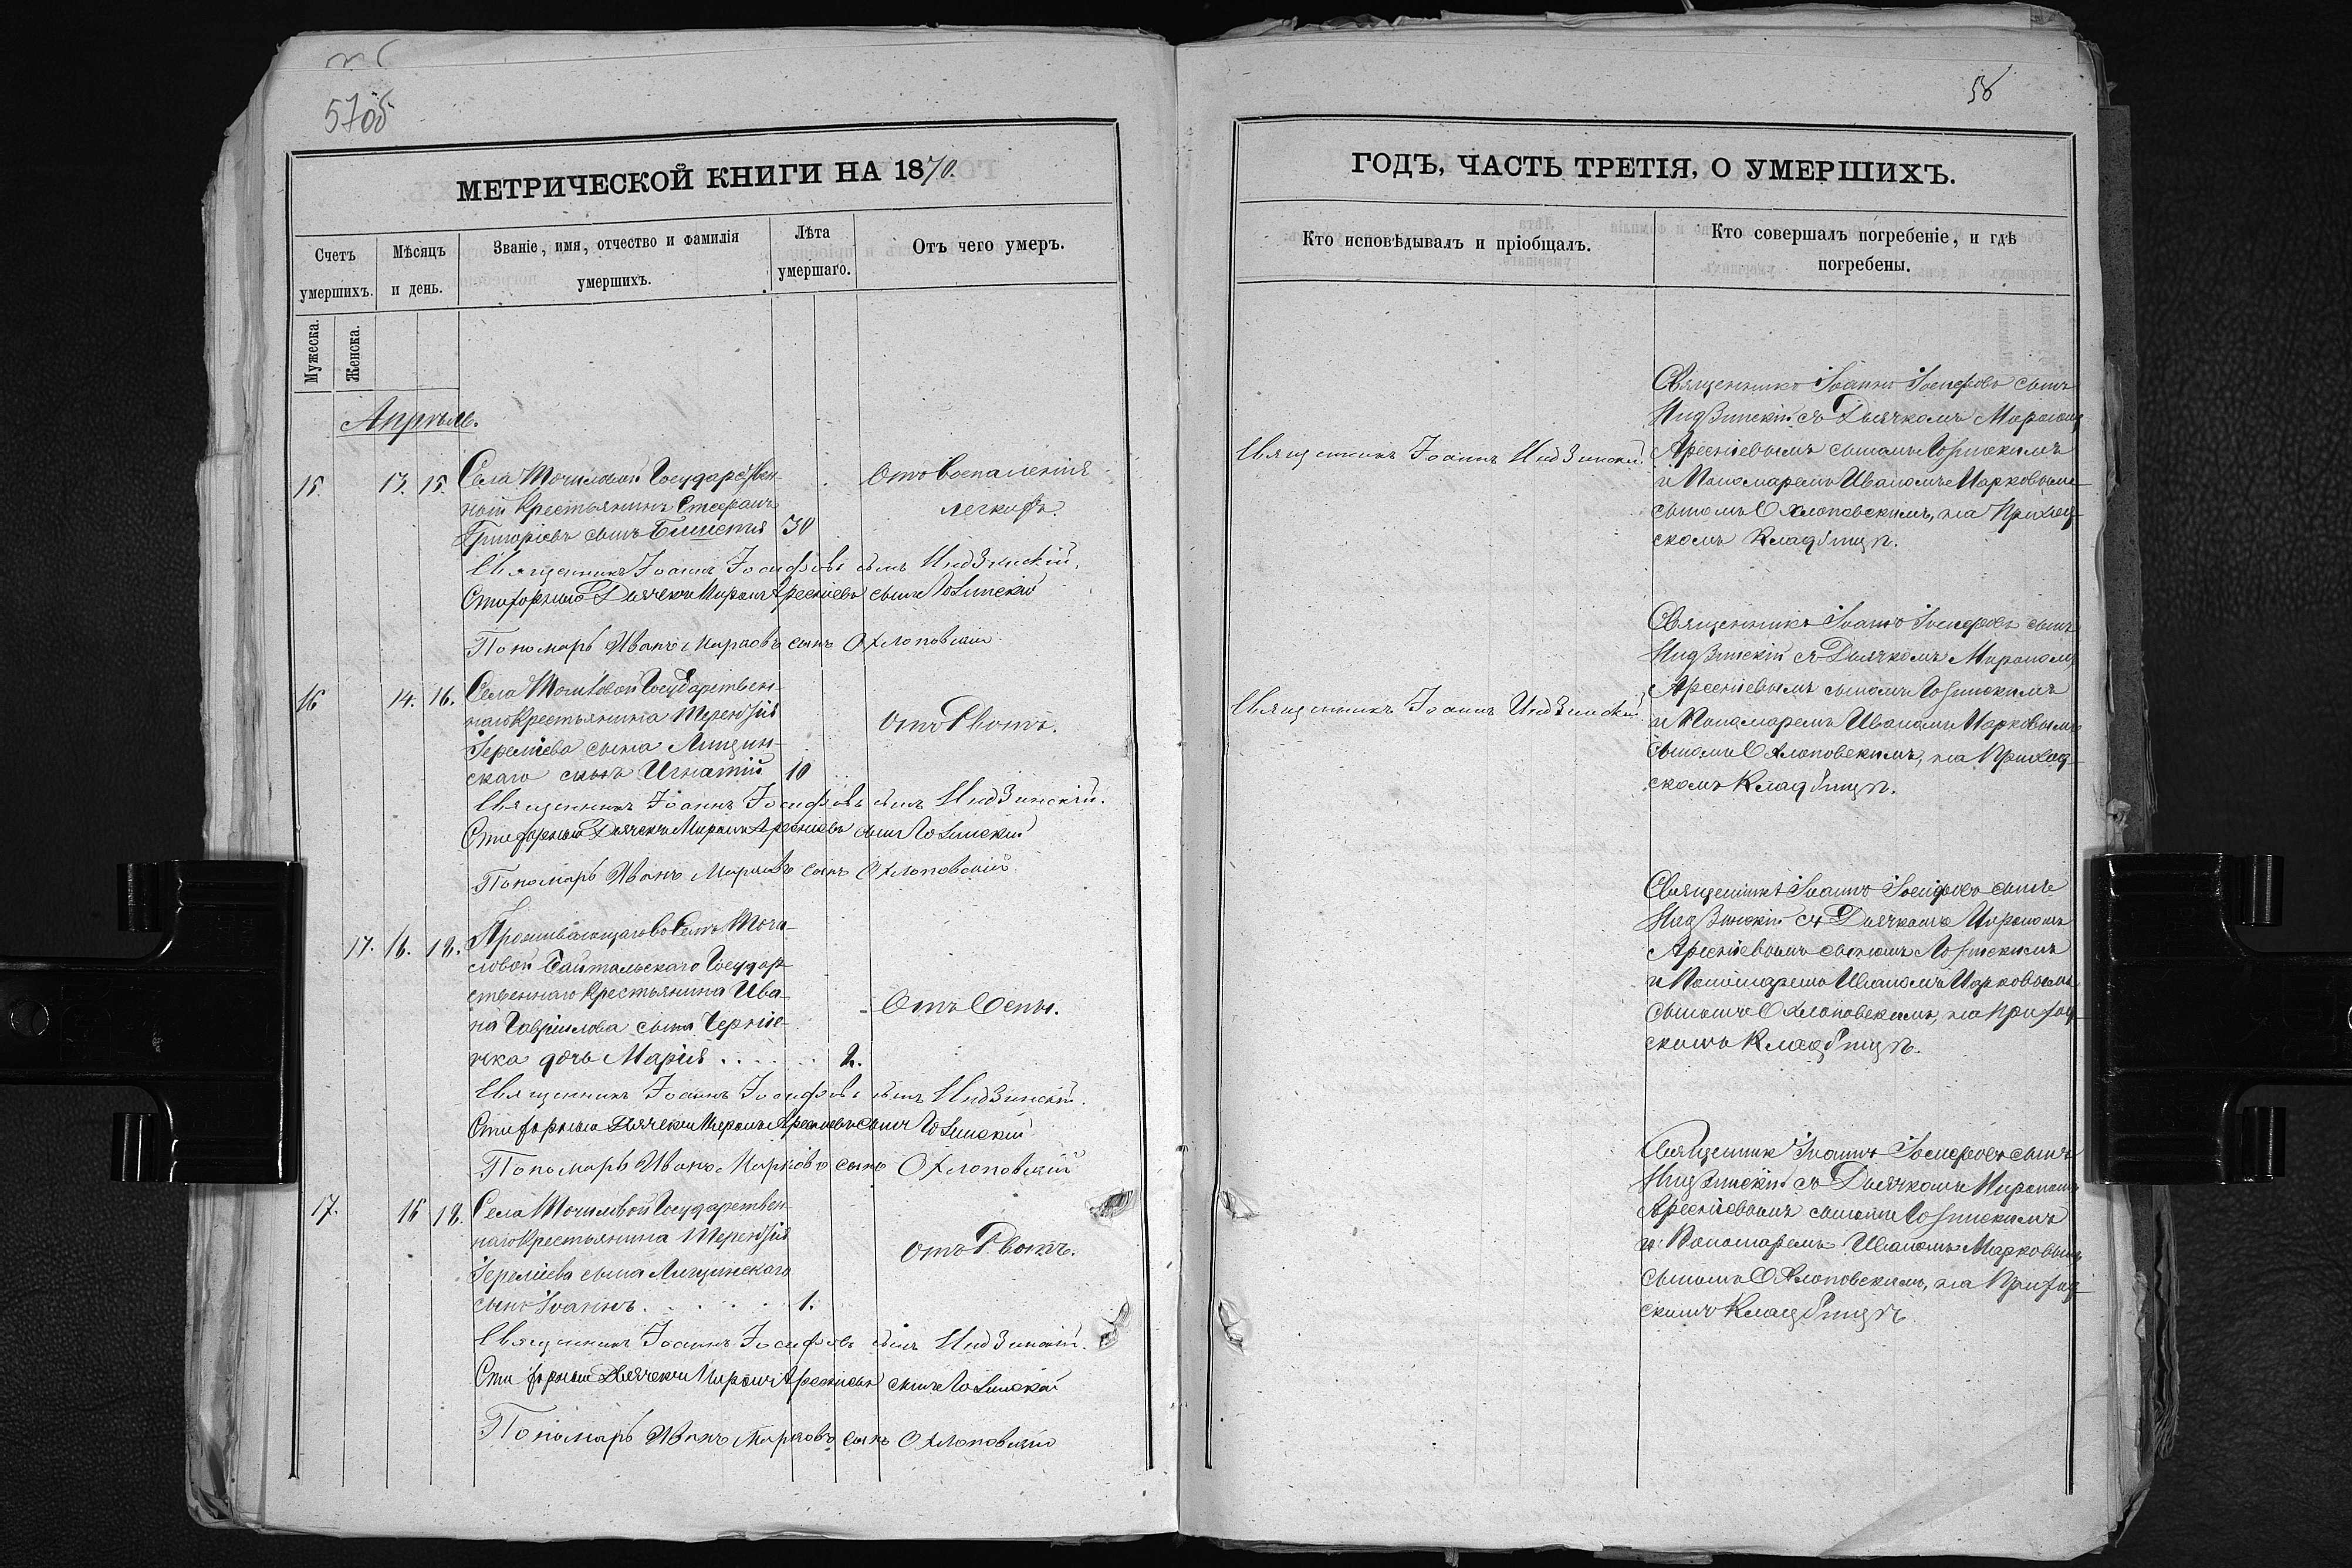 57об
58
МЕТРИЧЕСКОЙ КНИГИ НА 1870.
Счетъ умершихъ.
Мужеска.
Женска.
Мѣсяцъ и день.
Званіе, имя, отчество и фамилія умершихъ.
Лѣта умершаго.
Отъ чего умеръ.
Апрѣль.
15. 13. 15. Села Точиловой Государствен-
ный Крестьянинъ Стефанъ
Григоріевъ сынъ 30
Отъ Воспаленія
легкихъ.
Священникъ Іоаннъ Іосифовъ сынъ Индзинскій.
Стихарный Дьячекъ Миронъ Арсеніевъ сынъ Лозинскій
Пономарь Иванъ Марковъ сынъ Охлоповскій
16 14. 16. Села Точиловой Государствен-
наго Крестьянина Терентія
Іереміева сына Лищин-
скаго сынъ Игнатій 10
Отъ Рвотъ.
Священникъ Іоаннъ Іосифовъ сынъ Индзинскій.
Стихарный Дьячекъ Миронъ Арсеніевъ сынъ Лозинскій
Пономарь Иванъ Марковъ сынъ Охлоповскій
17. 16. 18. Проживающаго въ Селѣ Точи-
ловой Байтальскаго Государ-
ственнаго Крестьянина Ива-
на Гавріилова сына Черніе-
чка дочь Марія . . . . . 2.
Отъ Оспы.
Священникъ Іоаннъ Іосифовъ сынъ Индзинскій.
Стихарный Дьячекъ Миронъ Арсеніевъ сынъ Лозинскій
Пономарь Иванъ Марковъ сынъ Охлоповскій
17. 16 18. Села Точиловой Государствен-
наго Крестьянина Терентія
Іереміева сына Лищинскаго
сынъ Іоаннъ . . . . . . 1.
Отъ Рвотъ.
Священникъ Іоаннъ Іосифовъ сынъ Индзинскій.
Стихарный Дьячекъ Миронъ Арсеніевъ сынъ Лозинскій
Пономарь Иванъ Марковъ сынъ Охлоповскій
ГОДЪ, ЧАСТЬ ТРЕТІЯ, О УМЕРШИХЪ.
Кто исповѣдывалъ и пріобщалъ.
Кто совершалъ погребеніе, и гдѣ
погребены.
Священникъ Іоаннъ Индзинскій.
Священникъ Іоаннъ Іосифовъ сынъ
Индзинскій съ Дьячкомъ Мирономъ
Арсеніевымъ сыномъ Лозинскимъ
и Пономаремъ Иваномъ Марковымъ
сыномъ Охлоповскимъ, на Приход-
скомъ Кладбищѣ.
Священникъ Іоаннъ Индзинскій
Священникъ Іоаннъ Іосифовъ сынъ
Индзинскій съ Дьячкомъ Мирономъ
Арсеніевымъ сыномъ Лозинскимъ
и Пономаремъ Иваномъ Марковымъ
сыномъ Охлоповскимъ, на Приход-
скомъ Кладбищѣ.
Священникъ Іоаннъ Іосифовъ сынъ
Индзинскій съ Дьячкомъ Мирономъ
Арсеніевымъ сыномъ Лозинскимъ
и Пономаремъ Иваномъ Марковымъ
сыномъ Охлоповскимъ, на Приход-
скомъ Кладбищѣ.
Священникъ Іоаннъ Іосифовъ сынъ
Индзинскій съ Дьячкомъ Мирономъ
Арсеніевымъ сыномъ Лозинскимъ
и Пономаремъ Иваномъ Марковымъ
сыномъ Охлоповскимъ, на Приход-
скомъ Кладбищѣ